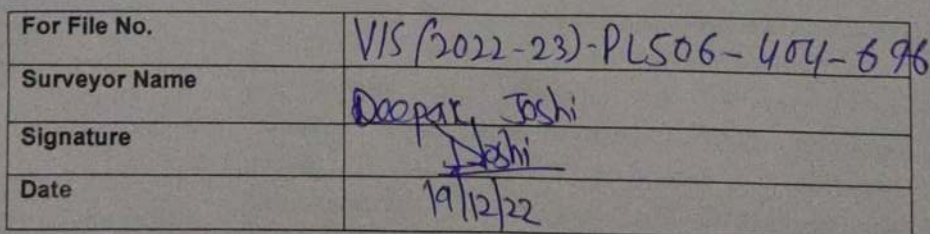 For File No. VIS (2022-23)-PL506-404-696
Surveyor Name Deepak Joshi
Signature DJoshi
Date 19/12/22